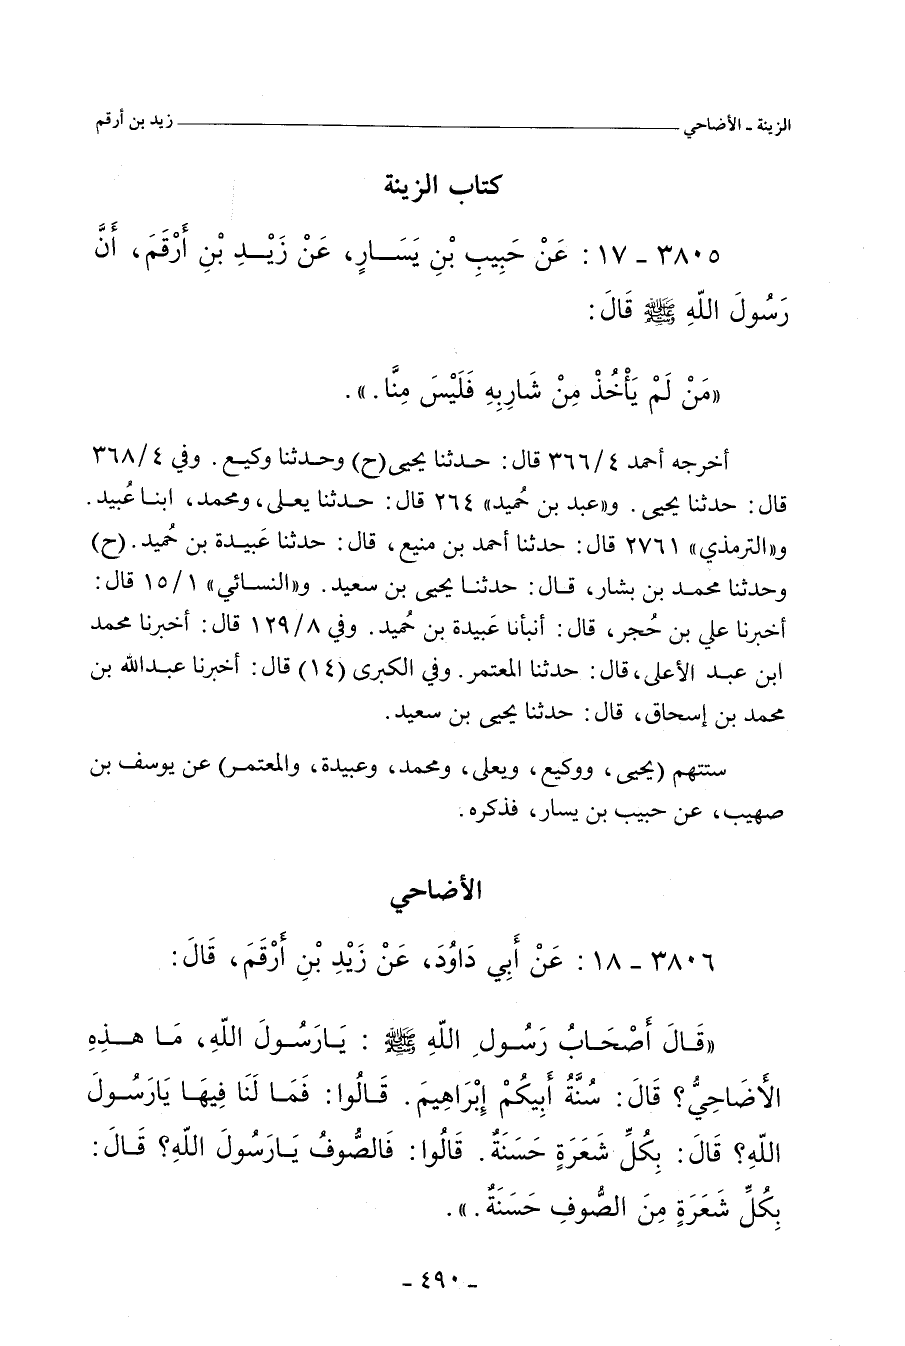 الزينة - الأضاحي زيد بن أرقم
كتاب الزينة
٣٨٠٥ - ١٧ : عَنْ حَبِيبِ بْنِ يَسَارٍ، عَنْ زَيْدِ بْنِ أَرْقَمَ، أَنَّ
رَسُولَ اللّهِ ﷺ قَالَ:
«مَنْ لَمْ يَأْخُذْ مِنْ شَارِبِهِ فَلَيْسَ مِنَّا.».
أخرجه أحمد ٣٦٦/٤ قال: حدثنا يحيى(ح) وحدثنا وكيع. وفي ٣٦٨/٤
قال: حدثنا يحيى. و«عبد بن حُميد» ٢٦٤ قال: حدثنا يعلى، ومحمد، ابنا عُبيد.
و«الترمذي» ٢٧٦١ قال: حدثنا أحمد بن منيع، قال: حدثنا عَبيدة بن حُميد. (ح)
وحدثنا محمد بن بشار، قال: حدثنا يحيى بن سعيد. و«النسائي» ١٥/١ قال:
أخبرنا علي بن حُجر، قال: أنبأنا عَبيدة بن حُميد. وفي ١٢٩/٨ قال: أخبرنا محمد
ابن عبد الأعلى، قال: حدثنا المعتمر. وفي الكبرى (١٤) قال: أخبرنا عبدالله بن
محمد بن إسحاق، قال: حدثنا يحيى بن سعيد.
ستتهم (يحيى، ووكيع، ويعلى، ومحمد، وعبيدة، والمعتمر) عن يوسف بن
صهيب، عن حبيب بن يسار، فذكره.
الأضاحي
٣٨٠٦ - ١٨ : عَنْ أَبِي دَاوُدَ، عَنْ زَيْدِ بْنِ أَرْقَمَ، قَالَ:
«قَالَ أَصْحَابُ رَسُولِ اللّهِ ﷺ : يَارَسُولَ اللّهِ، مَا هذِهِ
الأَضَاحِيُّ؟ قَالَ: سُنَّةُ أَبِيكُمْ إِبْرَاهِيمَ. قَالُوا: فَمَا لَنَا فِيهَا يَارَسُولَ
اللّهِ؟ قَالَ: بِكُلِّ شَعَرَةٍ حَسَنَةٌ. قَالُوا: فَالصُّوفُ يَارَسُولَ اللّهِ؟ قَالَ:
بِكُلِّ شَعَرَةٍ مِنَ الصُّوفِ حَسَنَةٌ.».
- ٤٩٠ -